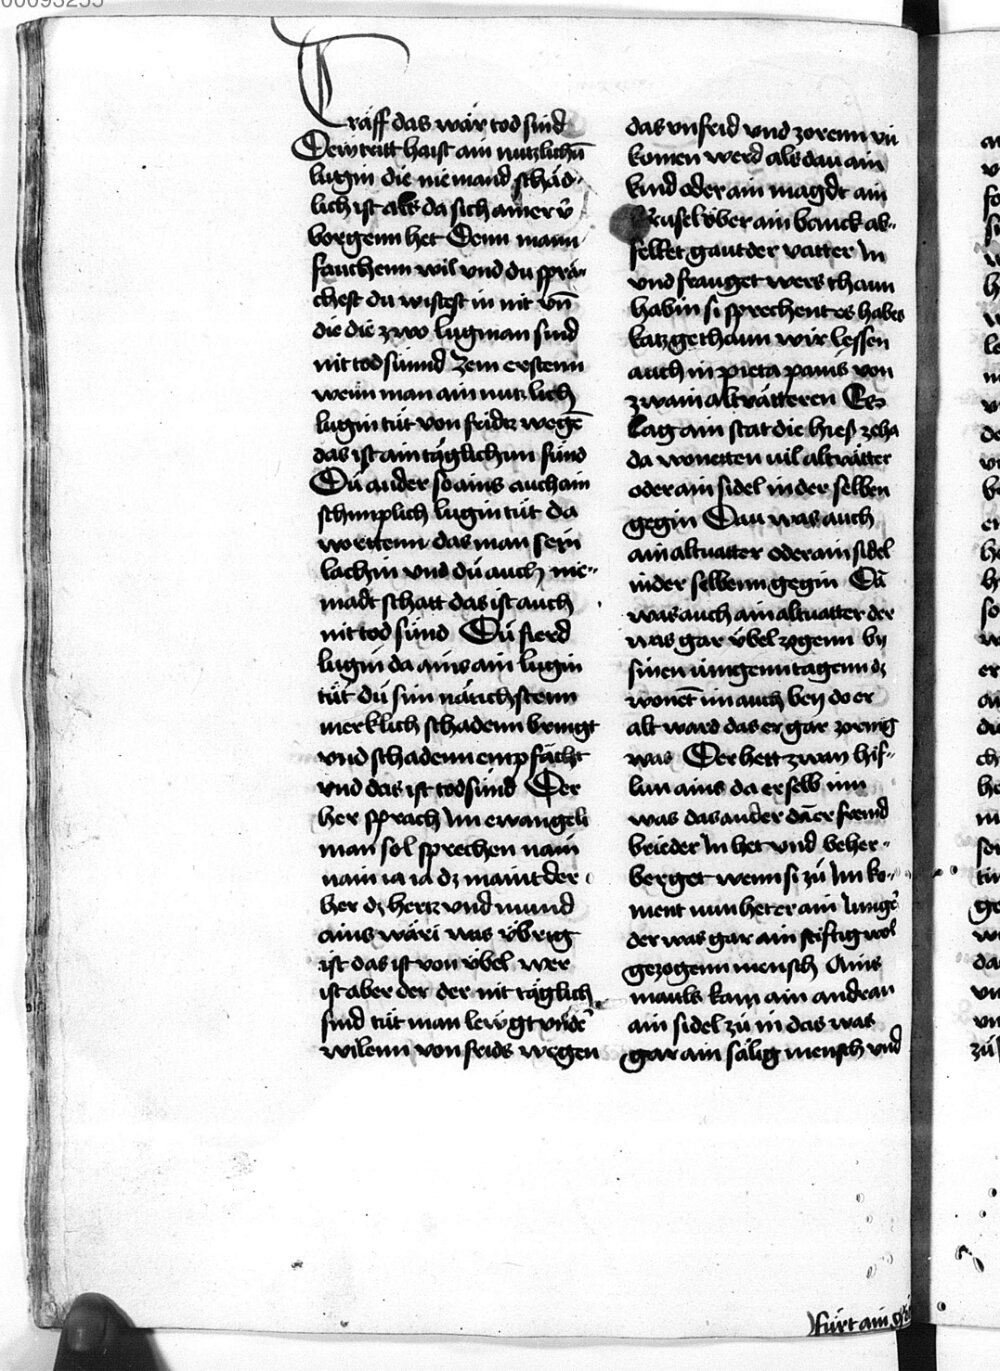 00095255
Träff das wär tod sünd
Der tritt haist ain nutzlichū
lugin die niemand schäd-
lich ist als da sich ainer v̄
borgenn het Denn mann
sauchenn wil vnd du sprä-
chest du wistest in nit vn̄
die die zwo lugman sind
nit tod sünnd Zem erstenn
wenn man ain nutzlich
lugin tüt von frides wegē
das ist ain täglichun sünd
Dü ander so ains auch ain
schimplich lugin tüt da
worttenn das man sein
lachin vnd dü auch nie-
madt schatt das ist auch
nit tod sünd Dü fierd
lugin da ains ain lugin
tüt dü sim nächchstenn
merklich schadenn bringt
vnd schadenn empfächt
vnd das ist tod sünd Der
her sprach Im ewangeli
man sol sprechen nain
nain ia ia dz maint der
her dz hertz vnd mund
ains wäri was v̈brig
ist das ist von v̈bel wer
ist aber der der nit täglich
sind tüt man lewgt vnder
wilenn von frids wegen
das vnfrid vnd zorenn vn
komen werd als dau ain
kind oder ain magdt ain
over ain banck ab-
felket gaut der vatter In
vnd frauget wers thaun
habin si sprechent es habs
katz gethaun wir lessen
auch in pieta panis von
zwain altvätteren Es
Lag ain stat die hieß zeha
da wonetten uil altvätter
oder ain sidel in der selben
gegin Dau was auch
ain altuatter oder ain sidel
in der selbenn gegin Da
was auch ain altuatter der
was gar v̈bel zogenn by
sinen iungenn tagenn dz
wonet im auch bey do er
alt ward das er gar zornig
was Der hett zway hüs-
lun ains da er selb inn
was das ander da er fremd
brieder In het vnd beher-
berget wenn si zü Im ko-
ment nun het er ain Iunger
der was gar ain seiftig wol
gezogenn mensch Ains
mauls kam ain andrau
ain sidel zü in das was
gar ain sälig mensch vnd
fürt ain